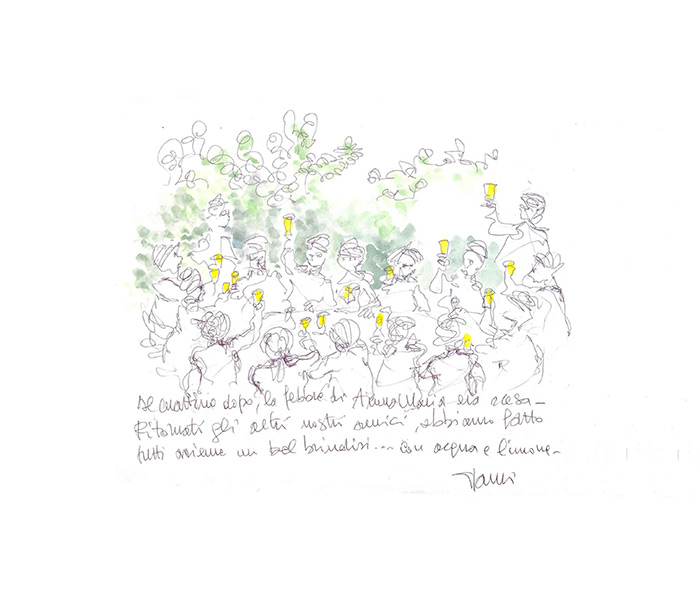 Al mattino dopo, la febbre di Anna Maria era scesa –
Ritornati gli altri nostri amici, abbiamo fatto
tutti assieme un bel brindisi... con acqua e limone –